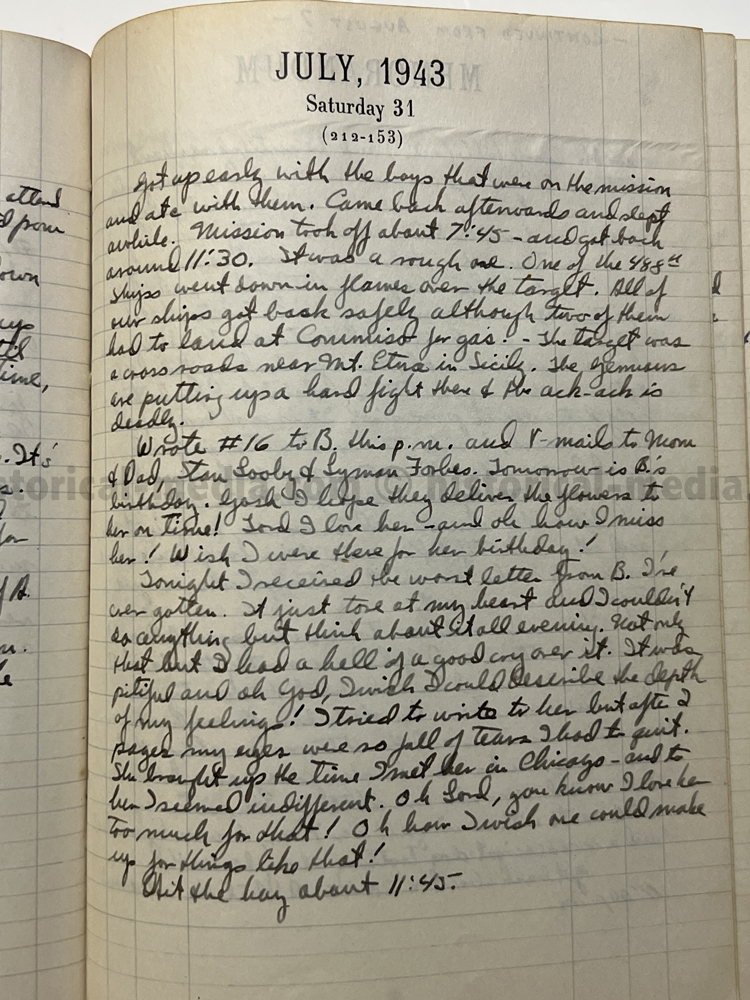 JULY, 1943
Saturday 31
(212-153)
Got up early with the boys that were on the mission
and ate with them. Came back afterwards and slept
awhile. Mission took off about 7:45 - and got back
around 11:30. It was a rough one. One of the 488th
ships went down in flames over the target. All of
our ships got back safely although two of them
had to land at Commiso for gas. - The target was
a cross roads near Mt. Etna in Sicily. The Germans
are putting up a hard fight there & the ack-ack is
deadly.
Wrote #16 to B. this p.m. and V-mails to Mom
& Dad, Stan Looby & Lyman Forbes. Tomorrow is B.'s
birthday. Gosh I hope they deliver the flowers to
her on time! Lord I love her - and oh how I miss
her! Wish I were there for her birthday!
Tonight I received the worst letter from B. I've
ever gotten. It just tore at my heart and I couldn't
do anything but think about it all evening. Not only
that but I had a hell of a good cry over it. It was
pitiful and oh God, I wish I could describe the depth
of my feelings! I tried to write to her but after 2
pages my eyes were so full of tears I had to quit.
She brought up the time I met her in Chicago - and to
her I seemed indifferent. Oh Lord, you know I love her
too much for that! Oh how I wish one could make
up for things like that!
Hit the hay about 11:45.